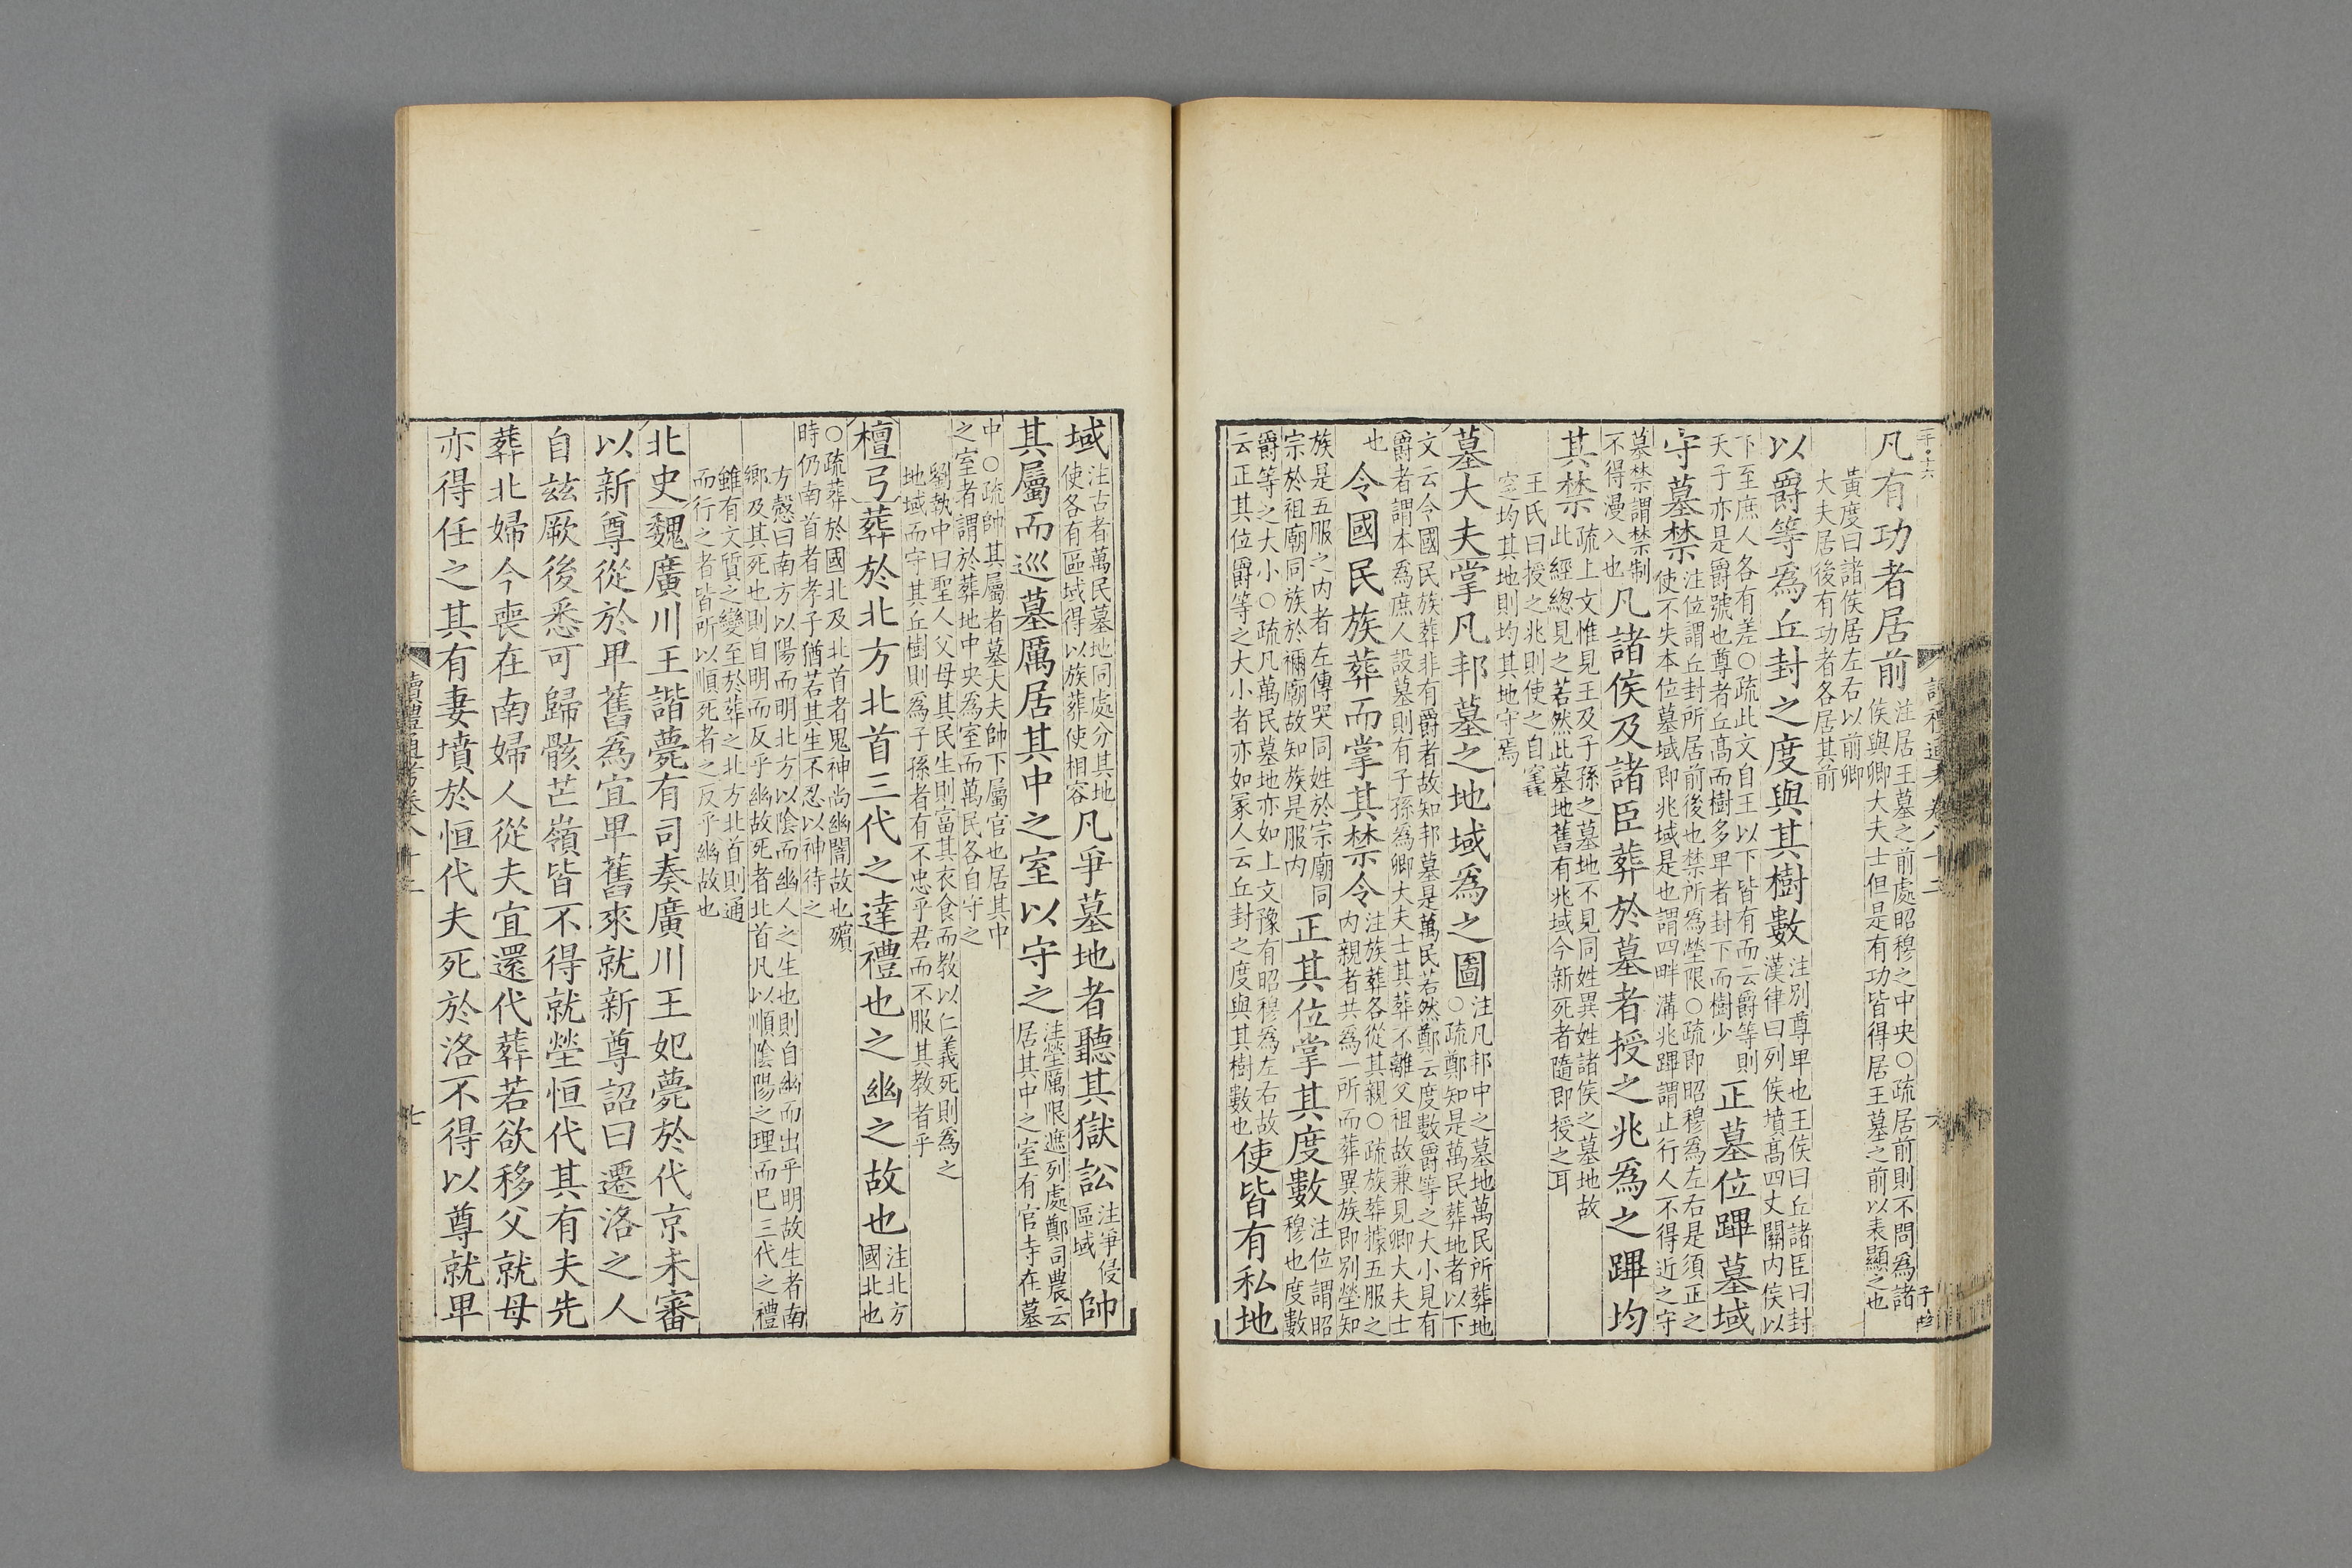 凡有功者居前注居王墓之前處昭穆之中央○疏居前則不問爲諸
侯與卿大夫士但是有功皆得居王墓之前以表顯之也
黃度曰諸侯居左右以前卿
大夫居後有功者各居其前
以爵等爲丘封之度與其樹數注別尊卑也王侯曰丘諸臣曰封
漢律曰列侯墳髙四丈關内侯以
下至庶人各有差○疏此文自王以下皆有而云爵等則
天子亦是爵號也尊者丘髙而樹多卑者封下而樹少
正墓位蹕墓域
守墓禁注位謂丘封所居前後也禁所爲塋限○疏即昭穆爲左右是須正之
使不失本位墓域即兆域是也謂四畔溝兆蹕謂止行人不得近之守
墓禁謂禁制
不得漫入也
凡諸侯及諸臣葬於墓者授之兆爲之蹕均
其禁疏上文惟見王及子孫之墓地不見同姓異姓諸侯之墓地故
此經總見之若然此墓地舊有兆域今新死者隨即授之耳
王氏曰授之兆則使之自窆
窆均其地則均其地守焉
墓大夫掌凡邦墓之地域爲之圖注凡邦中之墓地萬民所葬地
○疏鄭知是萬民葬地者以下
文云令國民族葬非有爵者故知邦墓是萬民若然鄭云度數爵等之大小見有
爵者謂本爲庶人設墓則有子孫爲卿大夫士其葬不離父祖故兼見卿大夫士
也
令國民族葬而掌其禁令注族葬各從其親○疏族葬據五服之
内親者共爲一所而葬異族即別塋知
族是五服之内者左傳哭同姓於宗廟同
宗於祖廟同族於禰廟故知族是服内
正其位掌其度數注位謂昭
穆也度數
爵等之大小○疏凡萬民墓地亦如上文豫有昭穆爲左右故
云正其位爵等之大小者亦如冢人云丘封之度與其樹數也
使皆有私地
域注古者萬民墓地同處分其地
使各有區域得以族葬使相容
凡爭墓地者聽其獄訟注爭侵
區域
帥
其屬而巡墓厲居其中之室以守之注塋厲限遮列處鄭司農云
居其中之室有官寺在墓
中○疏帥其屬者墓大夫帥下屬官也居其中
之室者謂於葬地中央爲室而萬民各自守之
劉執中曰聖人父母其民生則富其衣食而教以仁義死則爲之
地域而守其丘樹則爲子孫者有不忠乎君而不服其教者乎
檀弓葬於北方北首三代之達禮也之幽之故也注北方
國北也
○疏葬於國北及北首者鬼神尚幽闇故也殯
時仍南首者孝子猶若其生不忍以神待之
方慤曰南方以陽而明北方以陰而幽人之生也則自幽而出乎明故生者南
鄉及其死也則自明而反乎幽故死者北首凡以順陰陽之理而已三代之禮
雖有文質之變至於葬之北方北首則通
而行之者皆所以順死者之反乎幽故也
北史魏廣川王諧薨有司奏廣川王妃薨於代京未審
以新尊從於卑舊爲宜卑舊來就新尊詔曰遷洛之人
自兹厥後悉可歸骸芒嶺皆不得就塋恒代其有夫先
葬北婦今喪在南婦人從夫宜還代葬若欲移父就母
亦得任之其有妻墳於恒代夫死於洛不得以尊就卑
讀禮通考卷八十二
七